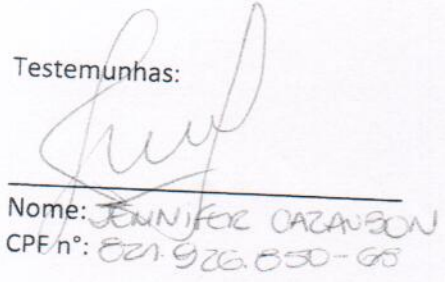 Testemunhas:
Nome: JENNIFER CAZANSON
CPF n°: 821.926.850-68